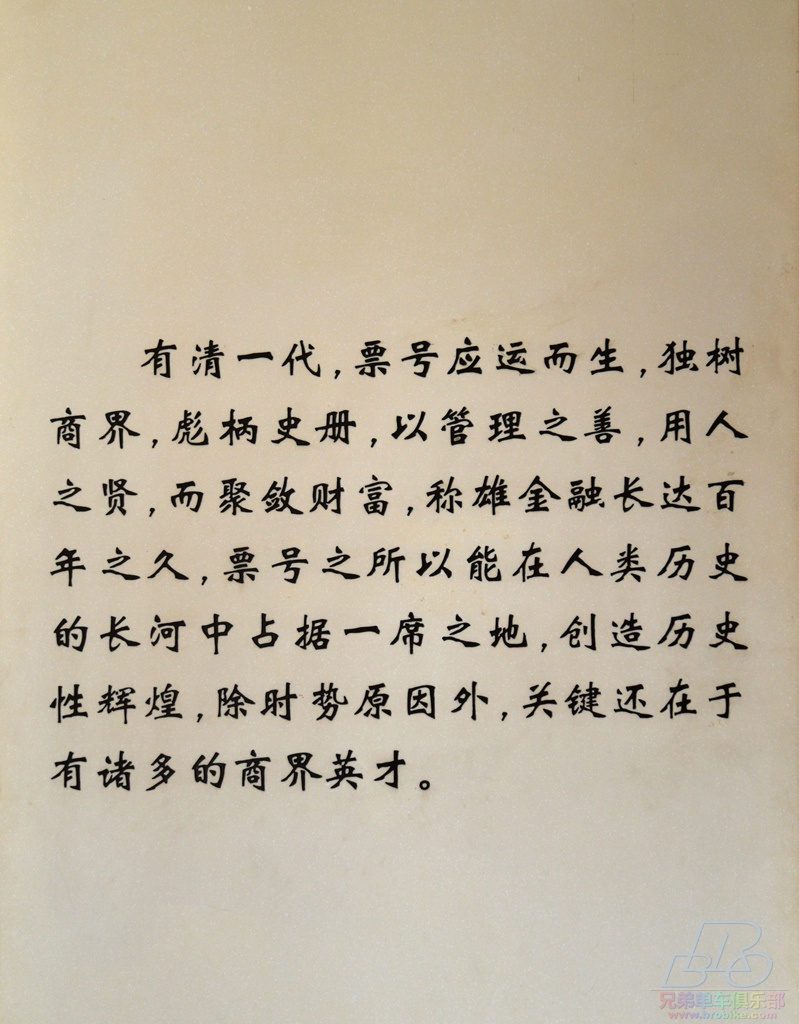 有清一代,票号应运而生,独树
商界,彪柄史册,以管理之善,用人
之贤,而聚敛财富,称雄金融长达百
年之久,票号之所以能在人类历史
的长河中占据一席之地,创造历史
性辉煌,除时势原因外,关键还在于
有诸多的商界英才。
BRO
兄弟单车俱乐部
www.brobike.com